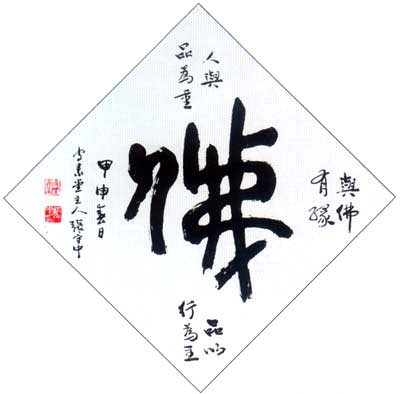 佛
與佛
有緣
人與
品為重
品以
行為主
甲申春日
守素堂主人張守中